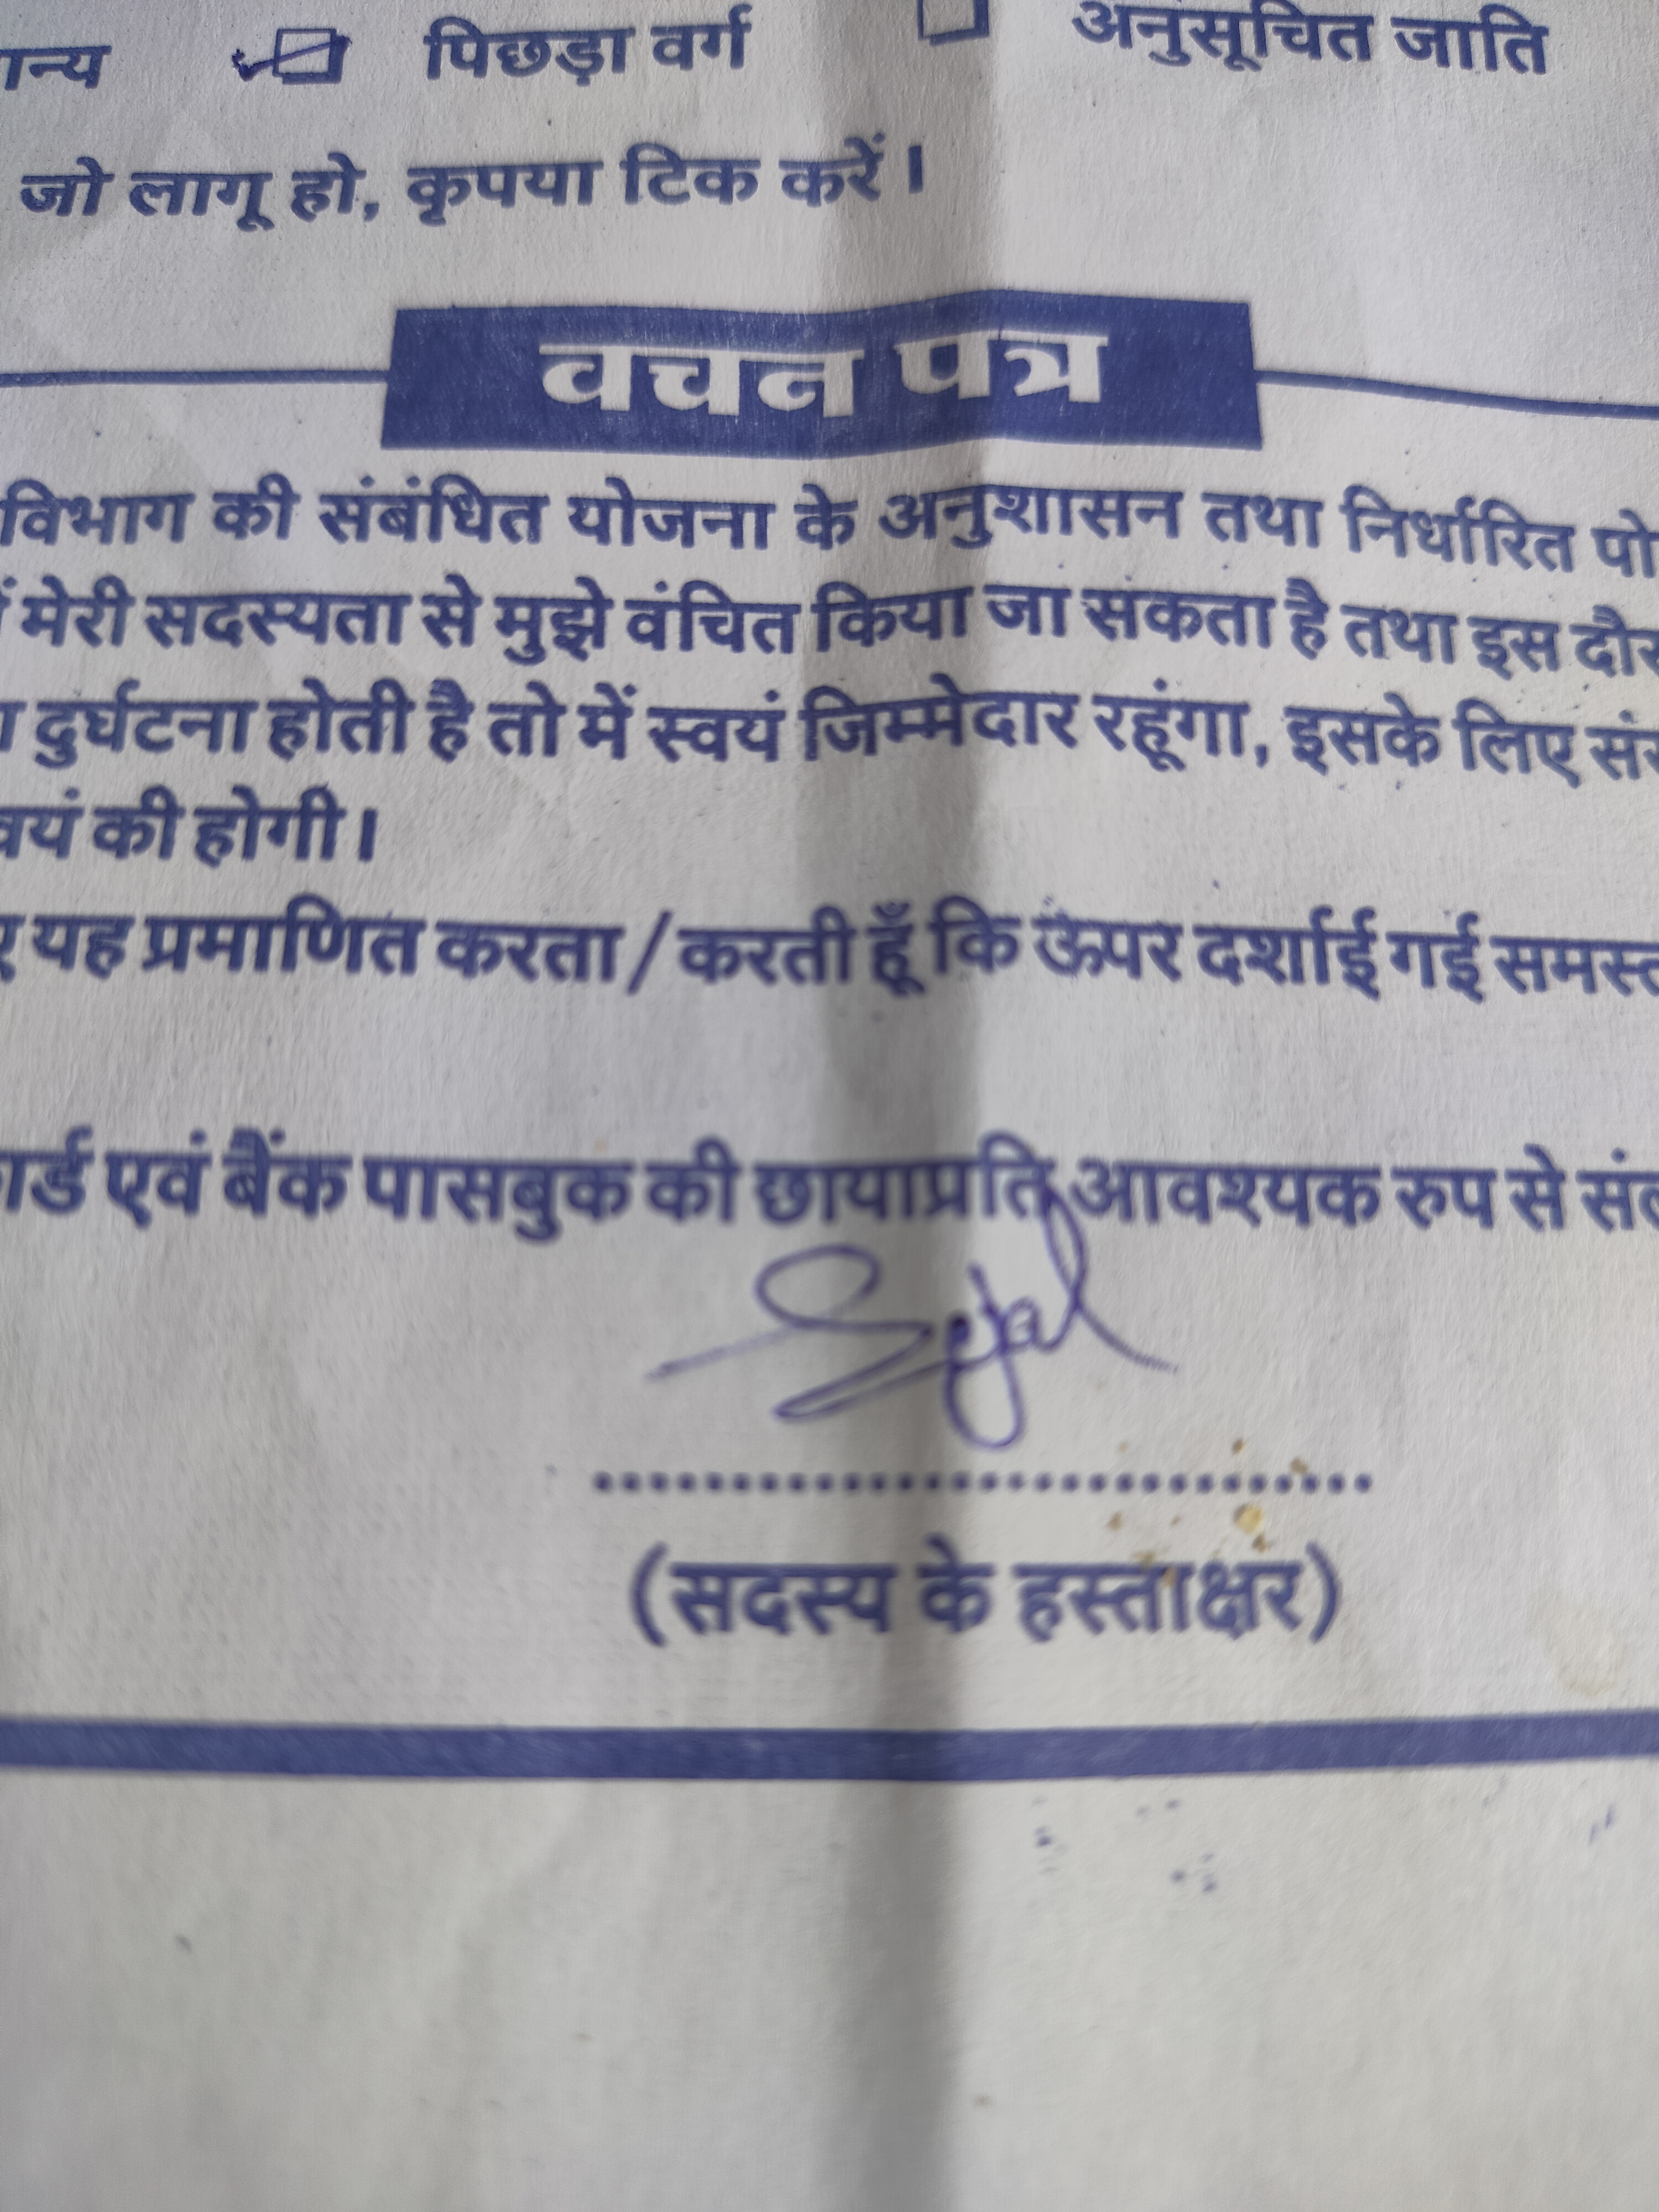 पिछड़ा वर्ग अनुसूचित जाति
जो लागू हो, कृपया टिक करें।
वचन पत्र
विभाग की संबंधित योजना के अनुशासन तथा निर्धारित
मेरी सदस्यता से मुझे वंचित किया जा सकता है तथा इस
दुर्घटना होती है तो में स्वयं जिम्मेदार रहूंगा, इसके लिए
की होगी।
यह प्रमाणित करता/करती हूँ कि ऊपर दर्शाई गई समस्त
एवं बैंक पासबुक की छायाप्रति आवश्यक रुप से
Sejal
(सदस्य के हस्ताक्षर)